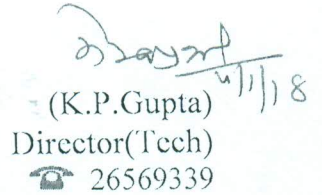 4/1/18
(K.P.Gupta)
Director(Tech)
☎ 26569339